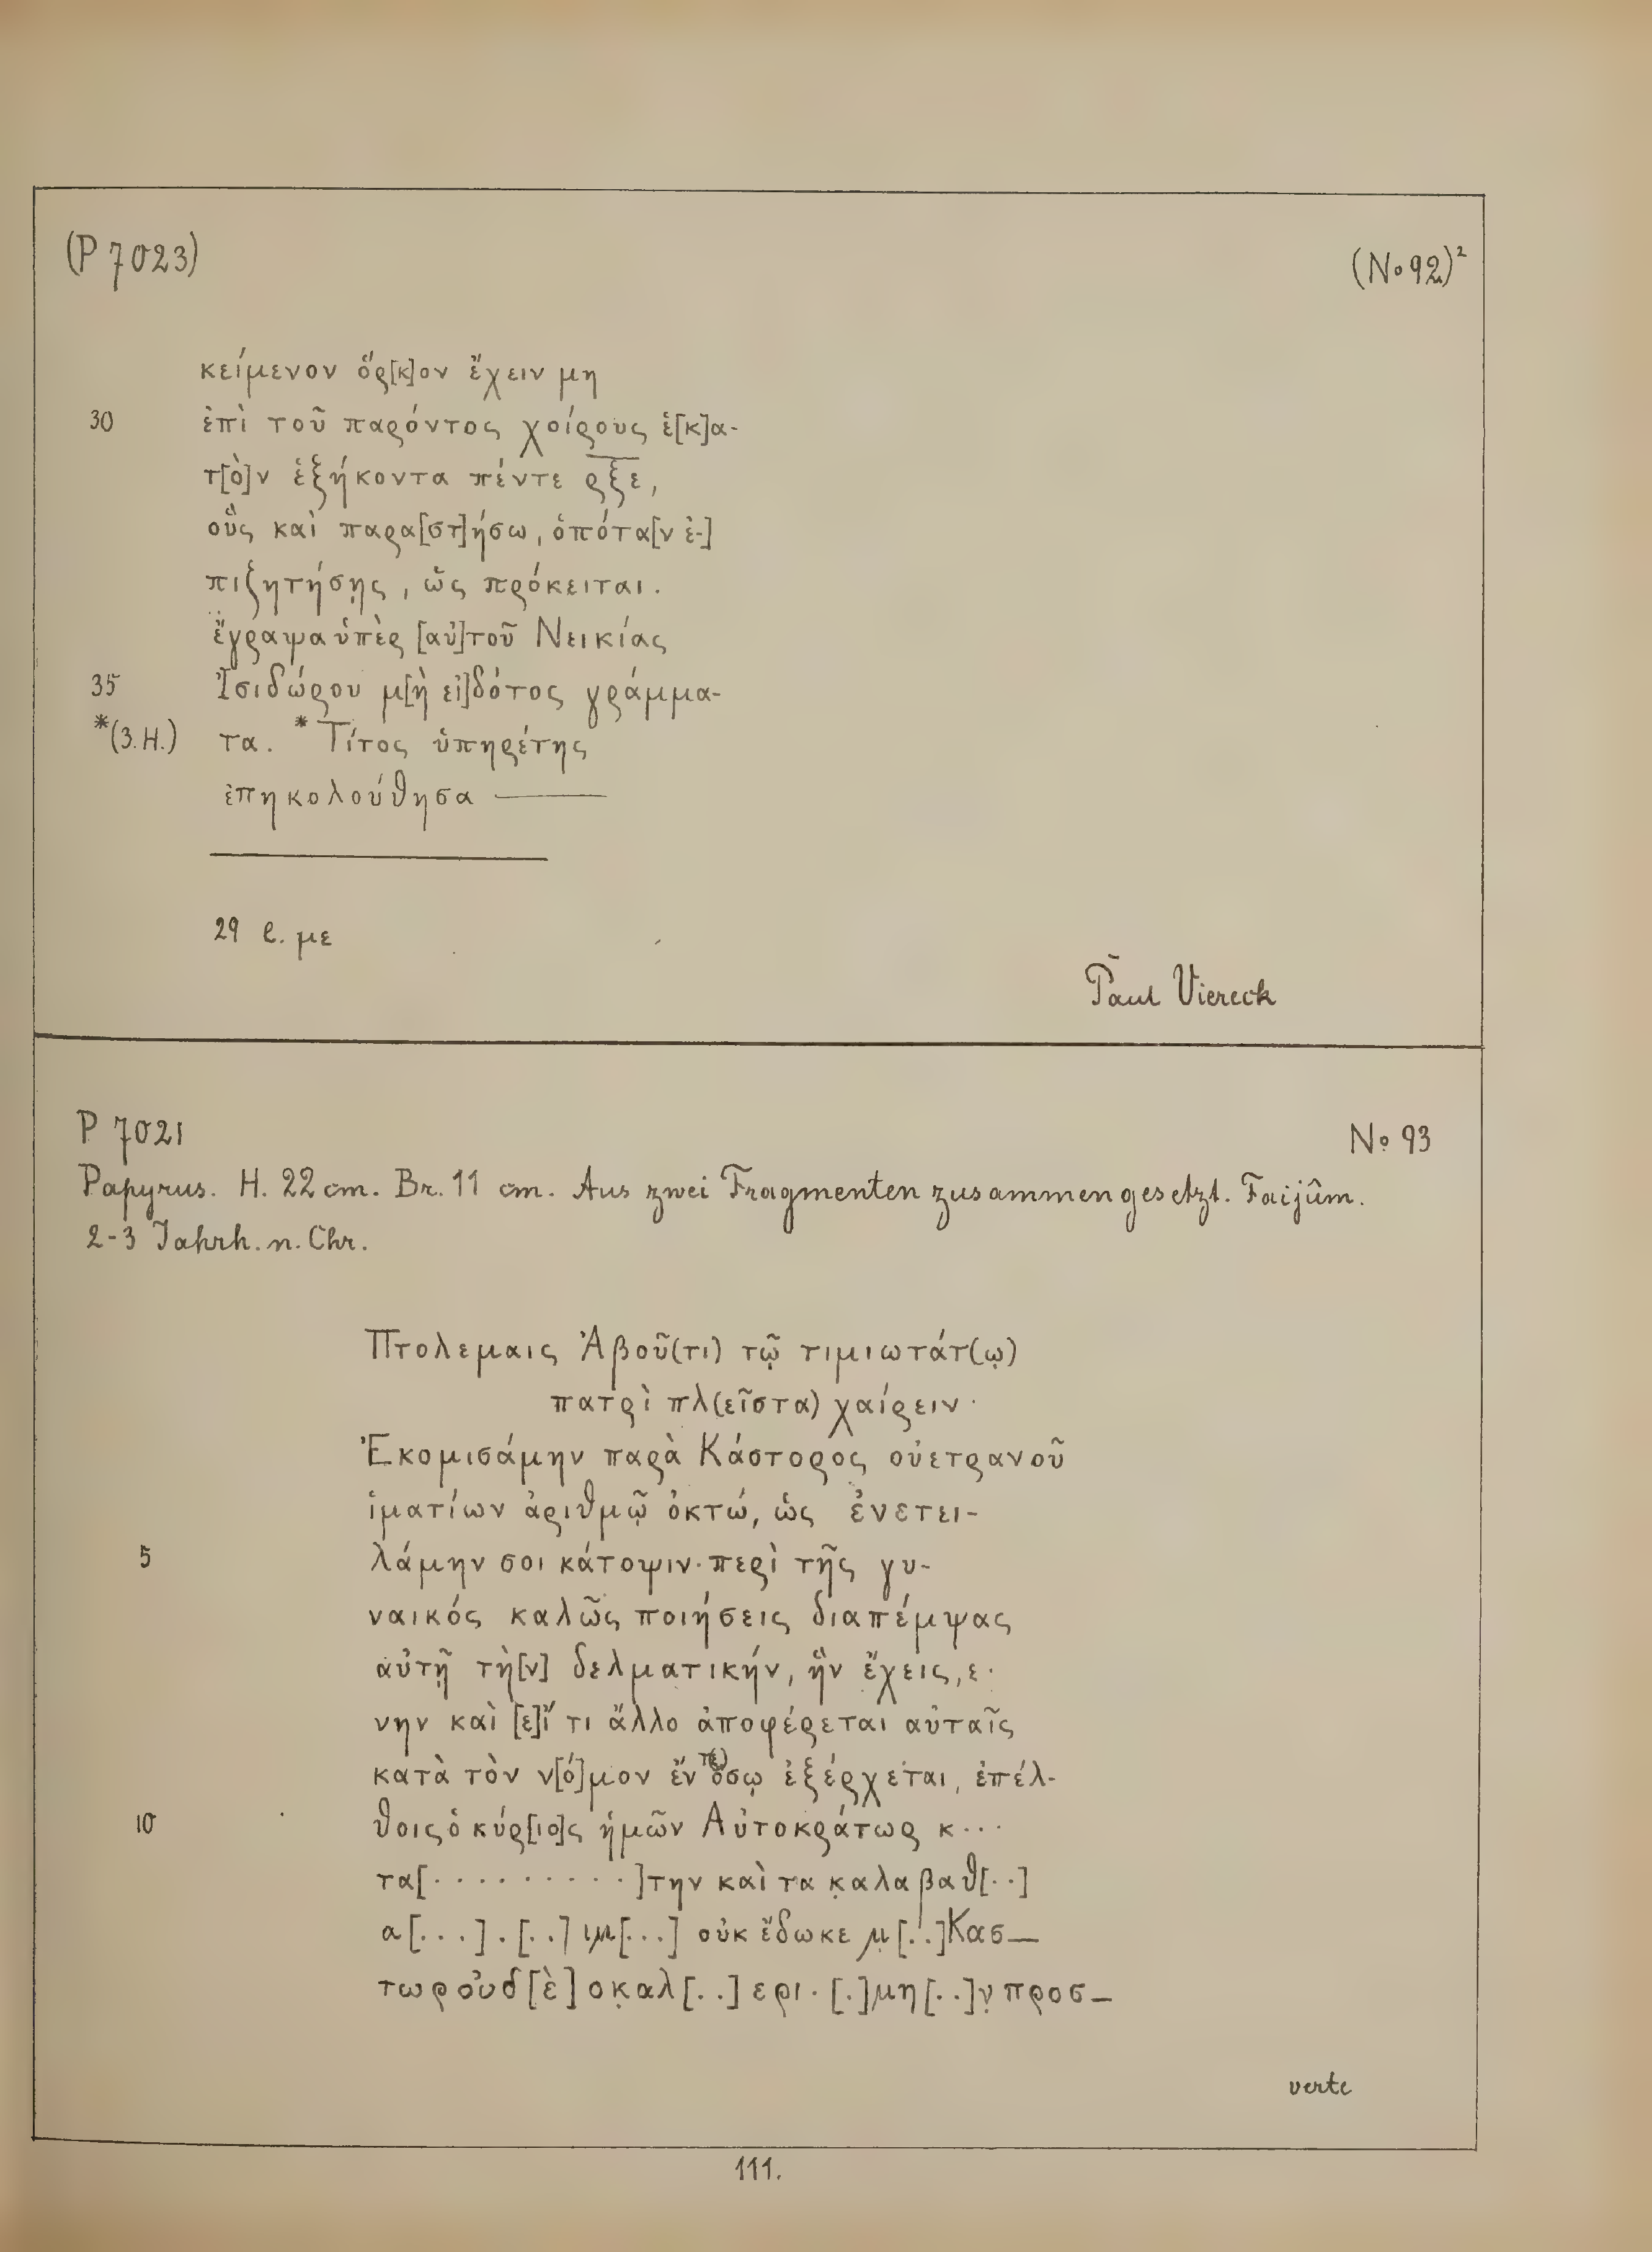 (P 7023)
(No 92)²
κείμενον ὅρ[κ]ον ἔχειν μη
30 ἐπὶ τοῦ παρόντος χοίρους ἑ[κ]α-
τ[ὸ]ν ἑξήκοντα πέντε ρ̅ξ̅ε̅,
οὓς καὶ παρα[στ]ήσω, ὁπότα[ν ἐ-]
πιζητήσῃς, ὡς πρόκειται.
ἔγραψα ὑπὲρ [αὐ]τοῦ Νεικίας
35 Ἰσιδώρου μ[ὴ εἰ]δότος γράμμα-
*(3. H.) τα. * Τίτος ὑπηρέτης
ἐπηκολούθησα —
29 l. με
Paul Viereck
P 7021
No 93
Papyrus. H. 22 cm. Br. 11 cm. Aus zwei Fragmenten zusammengesetzt. Faijûm.
2-3 Jahrh. n. Chr.
Πτολεμαις Ἀβοῦ(τι) τῷ τιμιωτάτ(ῳ)
πατρὶ πλ(εῖστα) χαίρειν·
Ἐκομισάμην παρὰ Κάστορος οὐετρανοῦ
ἱματίων ἀριθμῷ ὀκτώ, ὡς ἐνετει-
5 λάμην σοι κάτοψιν· περὶ τῆς γυ-
ναικός καλῶς ποιήσεις διαπέμψας
αὐτῇ τὴ[ν] δελματικήν, ἣν ἔχεις, ε·
νην καὶ [ε]ἴ τι ἄλλο ἀποφέρεται αὐταῖς
κατὰ τὸν ν[ό]μον ἔν ὅσῳ ἐξέρχεται, ἐπέλ-
10 θοις ὁ κύρ[ιο]ς ἡμῶν Αὐτοκράτωρ κ···
τα[·········]την καὶ τα κ̣αλαβαθ[··]
α[...].[..]ιμ[...] οὐκ ἔδωκε μ[..]Κασ—
τωρ οὐδ[ὲ] οκ̣αλ[..]ερι·[.]μη[..]ν̣ προσ—
verte
111.